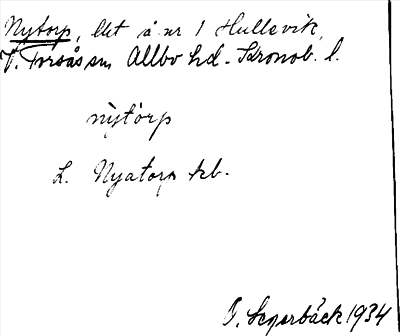 Nytorp, lht å nr 1 Hullevik,
V. Torsås sn Allbo hd. Kronob. l.
nỳtòrp
L. Nyatorp kb.
J. Segerbäck 1934